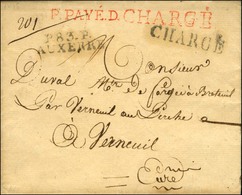 P. PAYÉ. D. CHARGÉ
201
P.83.P.
AUXERRE
CHARGÉ
Monsieur
Duval Mtre de forges à Breteuil
Par Verneuil au Perche
à Verneuil
Eure